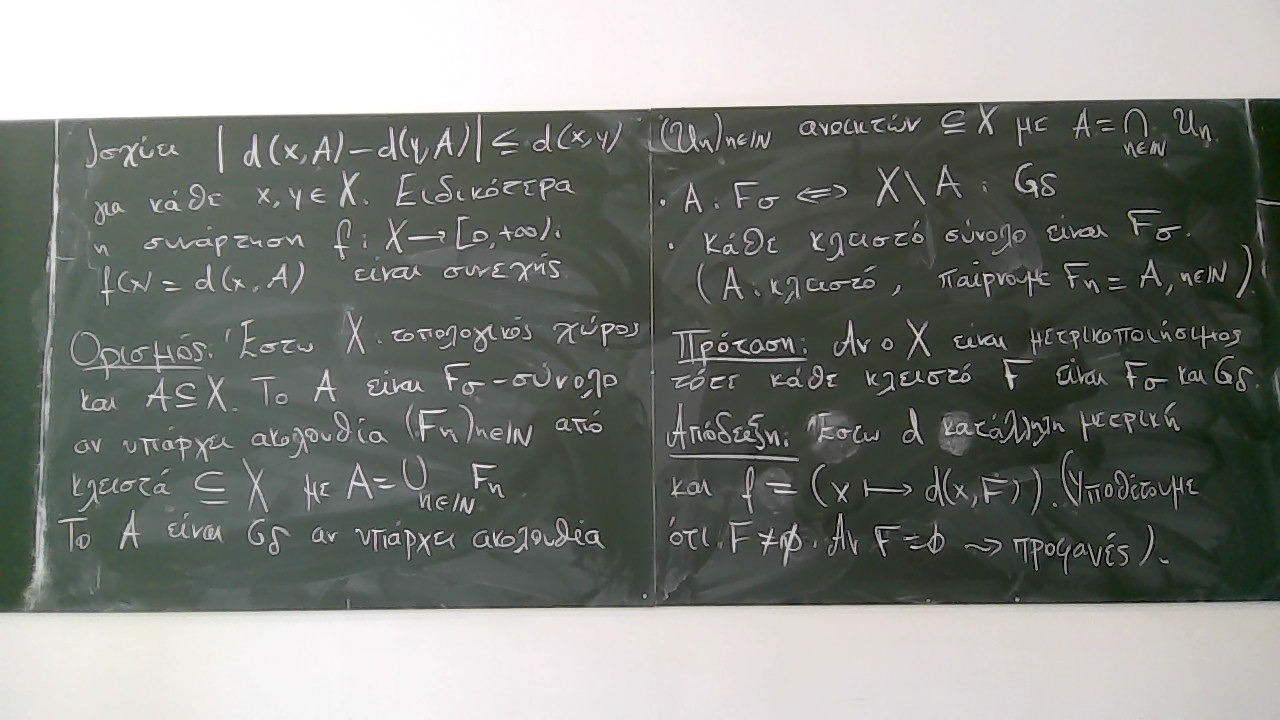 Ισχύει | d(x,A) – d(y,A)| ≤ d(x,y)
για κάθε x, y ∈ X. Ειδικότερα
η συνάρτηση f : X → [0,+∞):
f(x) = d(x, A) είναι συνεχής.
Ορισμός: Έστω X τοπολογικός χώρος
και A ⊆ X. Το A είναι Fσ – σύνολο
αν υπάρχει ακολουθία (Fn)n∈ℕ από
κλειστά ⊆ X με A = ∪n∈ℕ Fn
Το A είναι Gδ αν υπάρχει ακολουθία
(Un)n∈ℕ ανοικτών ⊆ X με A = ∩n∈ℕ Un.
· A : Fσ ⟺ X \ A : Gδ
· κάθε κλειστό σύνολο είναι Fσ.
(A : κλειστό, παίρνουμε Fn = A, n∈ℕ).
Πρόταση: Αν ο X είναι μετρικοποιήσιμος
τότε κάθε κλειστό F είναι Fσ και Gδ.
Απόδειξη: Έστω d κατάλληλη μετρική
και f = (x ⟼ d(x,F)). (Υποθέτουμε
ότι F ≠ ∅. Αν F = ∅ ⇝ προφανές).